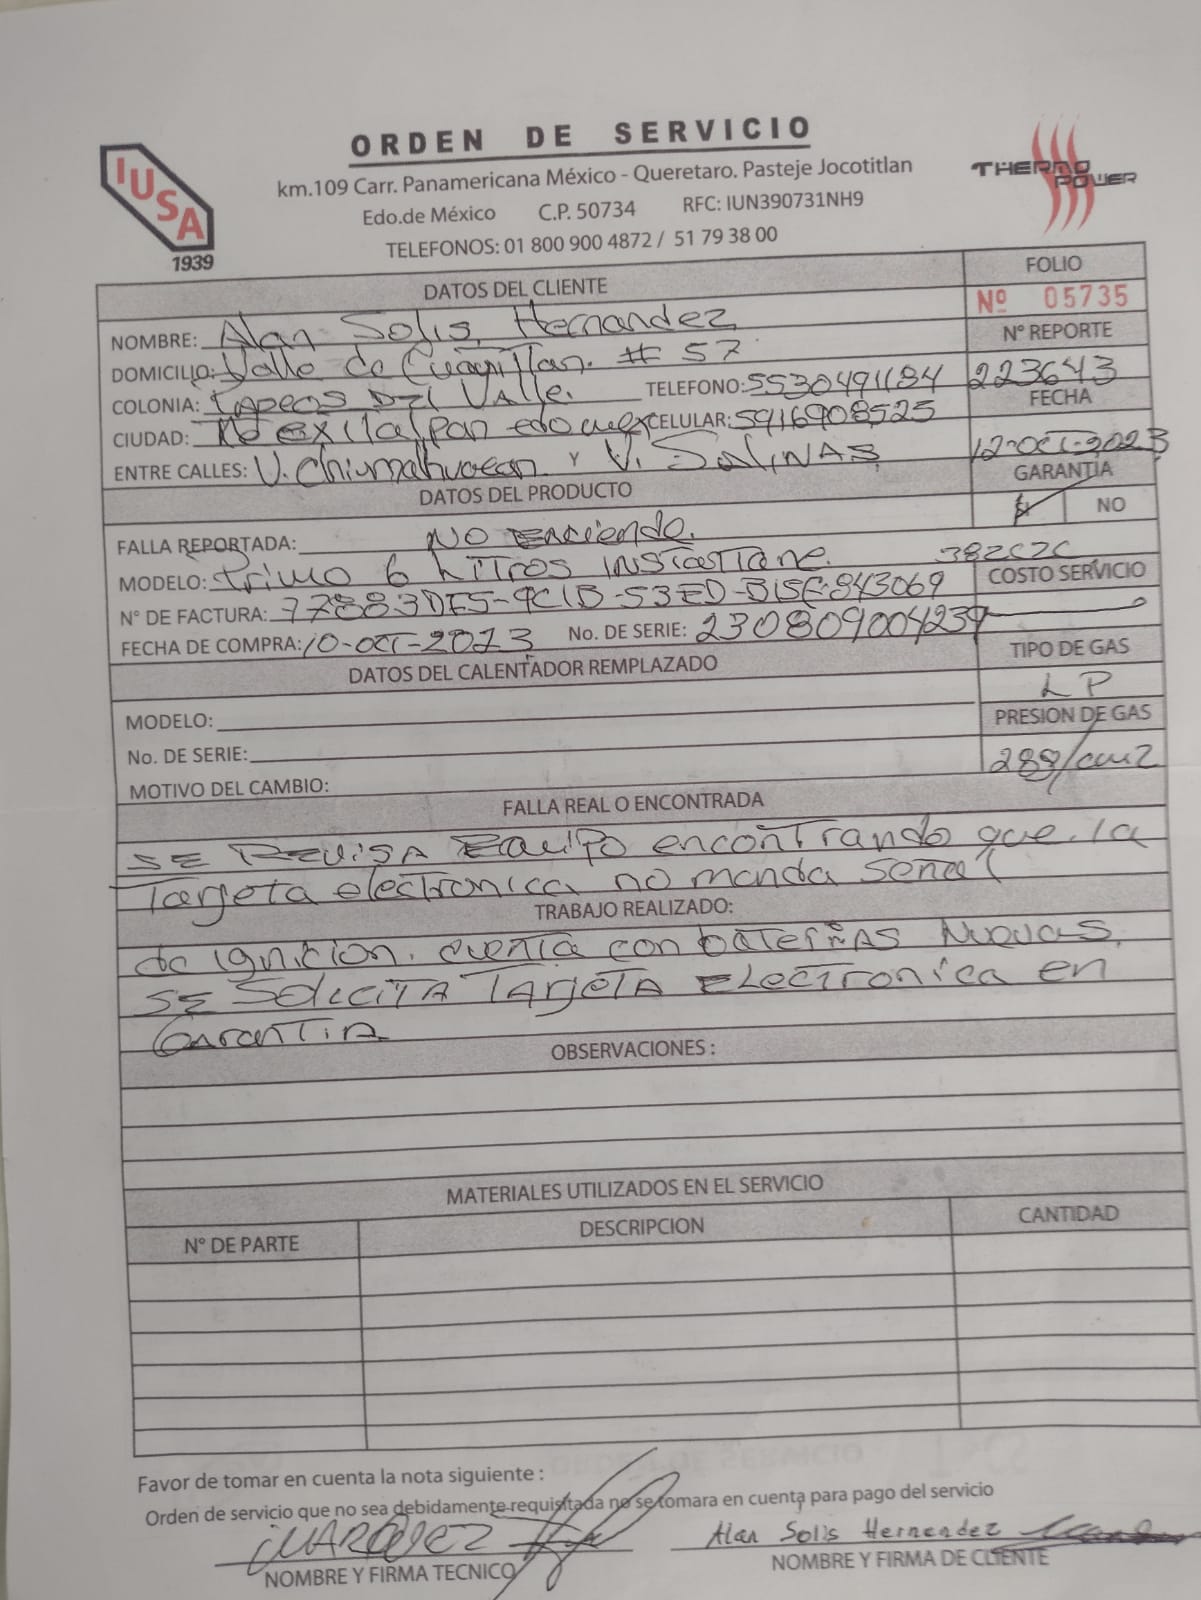 ORDEN DE SERVICIO
IUSA
1939
km.109 Carr. Panamericana México - Queretaro. Pasteje Jocotitlan
Edo.de México C.P. 50734 RFC: IUN390731NH9
TELEFONOS: 01 800 900 4872 / 51 79 38 00
THERMO POWER
DATOS DEL CLIENTE
FOLIO
Nº 05735
NOMBRE: Alan Solis Hernandez
Nº REPORTE
223643
DOMICILIO: Valle de # 57
COLONIA: DEL Valle. TELEFONO: 5530491184
FECHA
12-oct-2023
CIUDAD: edo mex CELULAR: 5916908525
ENTRE CALLES: V. Chimalhuacan Y V. SALINAS
GARANTIA
SI NO
DATOS DEL PRODUCTO
FALLA REPORTADA: NO Enciende.
MODELO: Primo 6 LITROS INSTANTANE. 382C2C
Nº DE FACTURA: 77883DF5-9C1B-53ED-B15E-843069
COSTO SERVICIO
FECHA DE COMPRA: 10-OCT-2023 No. DE SERIE: 230809004239
DATOS DEL CALENTADOR REMPLAZADO
TIPO DE GAS
LP
MODELO:
PRESION DE GAS
288/cm2
No. DE SERIE:
MOTIVO DEL CAMBIO:
FALLA REAL O ENCONTRADA
SE REVISA EQUIPO encontrando que la
Tarjeta electronica no manda señal
TRABAJO REALIZADO:
de ignicion. cuenta con baterias Nuevas.
SE Solicita Tarjeta Electronica en
Garantia
OBSERVACIONES :
MATERIALES UTILIZADOS EN EL SERVICIO
Nº DE PARTE DESCRIPCION CANTIDAD
Favor de tomar en cuenta la nota siguiente :
Orden de servicio que no sea debidamente requisitada no se tomara en cuenta para pago del servicio
Alan Solis Hernendez
NOMBRE Y FIRMA TECNICO NOMBRE Y FIRMA DE CLIENTE